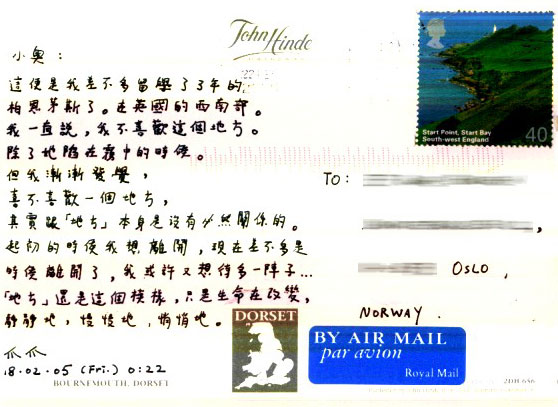 John Hinde
小奧：
這便是我差不多留學了3年的
柏恩茅斯了。在英國的西南部。
我一直說，我不喜歡這個地方。
除了地陷在霧中的時候。
但我漸漸發覺，
喜不喜歡一個地方，
其實跟「地方」本身是沒有必然關係的。
起初的時候我想離開，現在差不多是
時候離開了，我或許又想待多一陣子...
「地方」還是這個模樣，只是生命在改變，
靜靜地，慢慢地，悄悄地。
爪爪
18.02.05 (Fri.) 0:22
BOURNEMOUTH, DORSET
Start Point, Start Bay
South-west England
40
TO:
OSLO,
NORWAY.
DORSET
BY AIR MAIL
par avion
Royal Mail